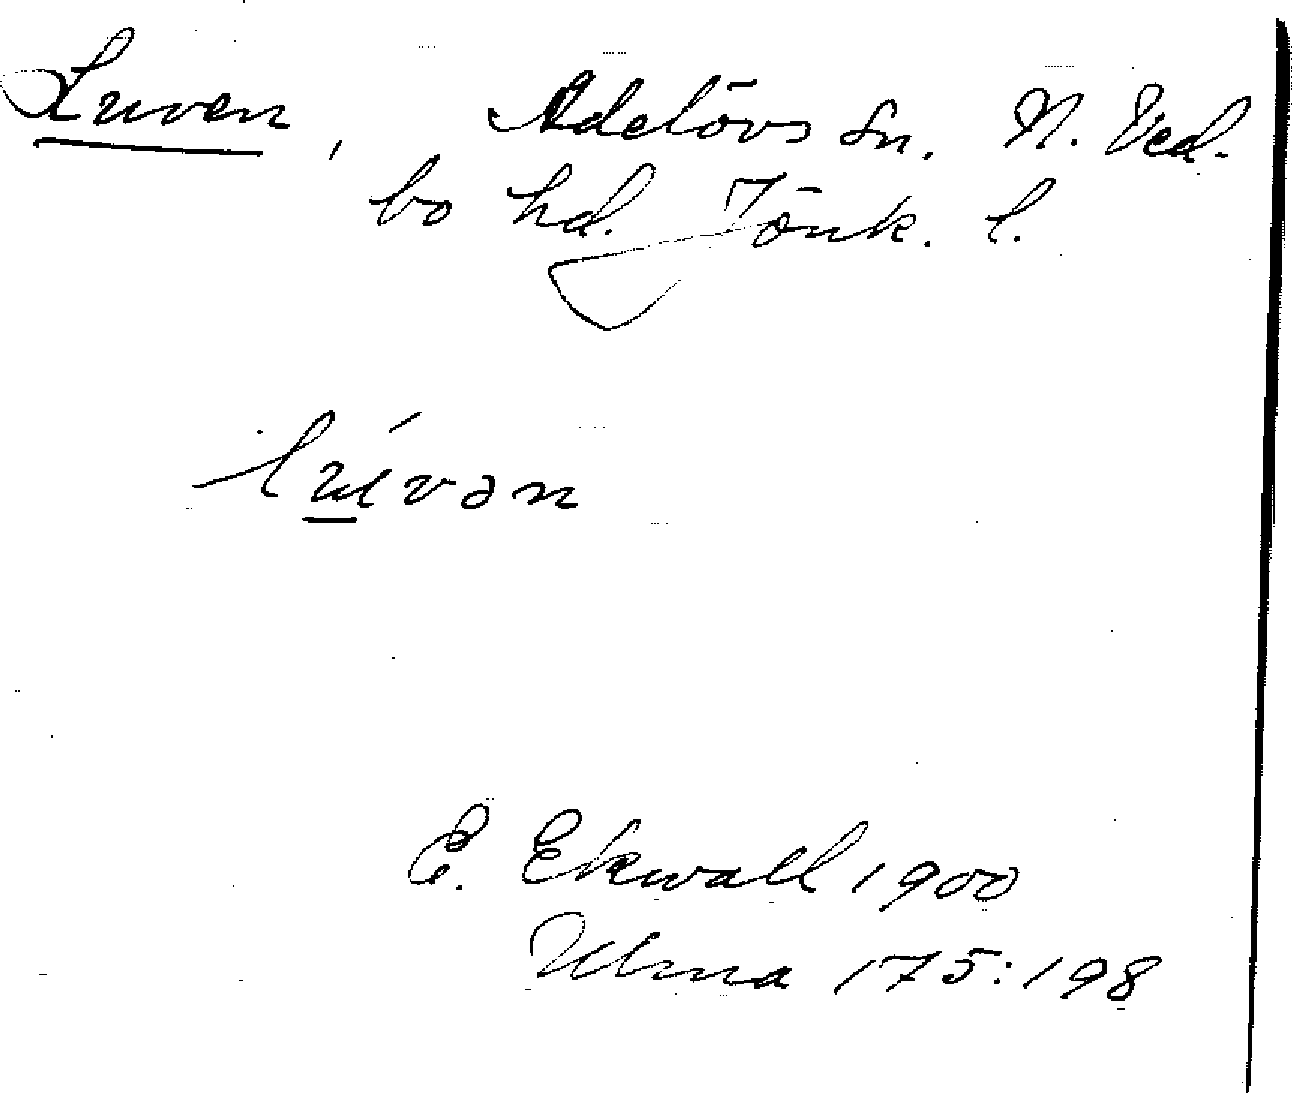 Luven, Adelövs sn. N. Ved-
bo hd. Jönk. l.
E. Ekwall 1900
Ulma 175:198